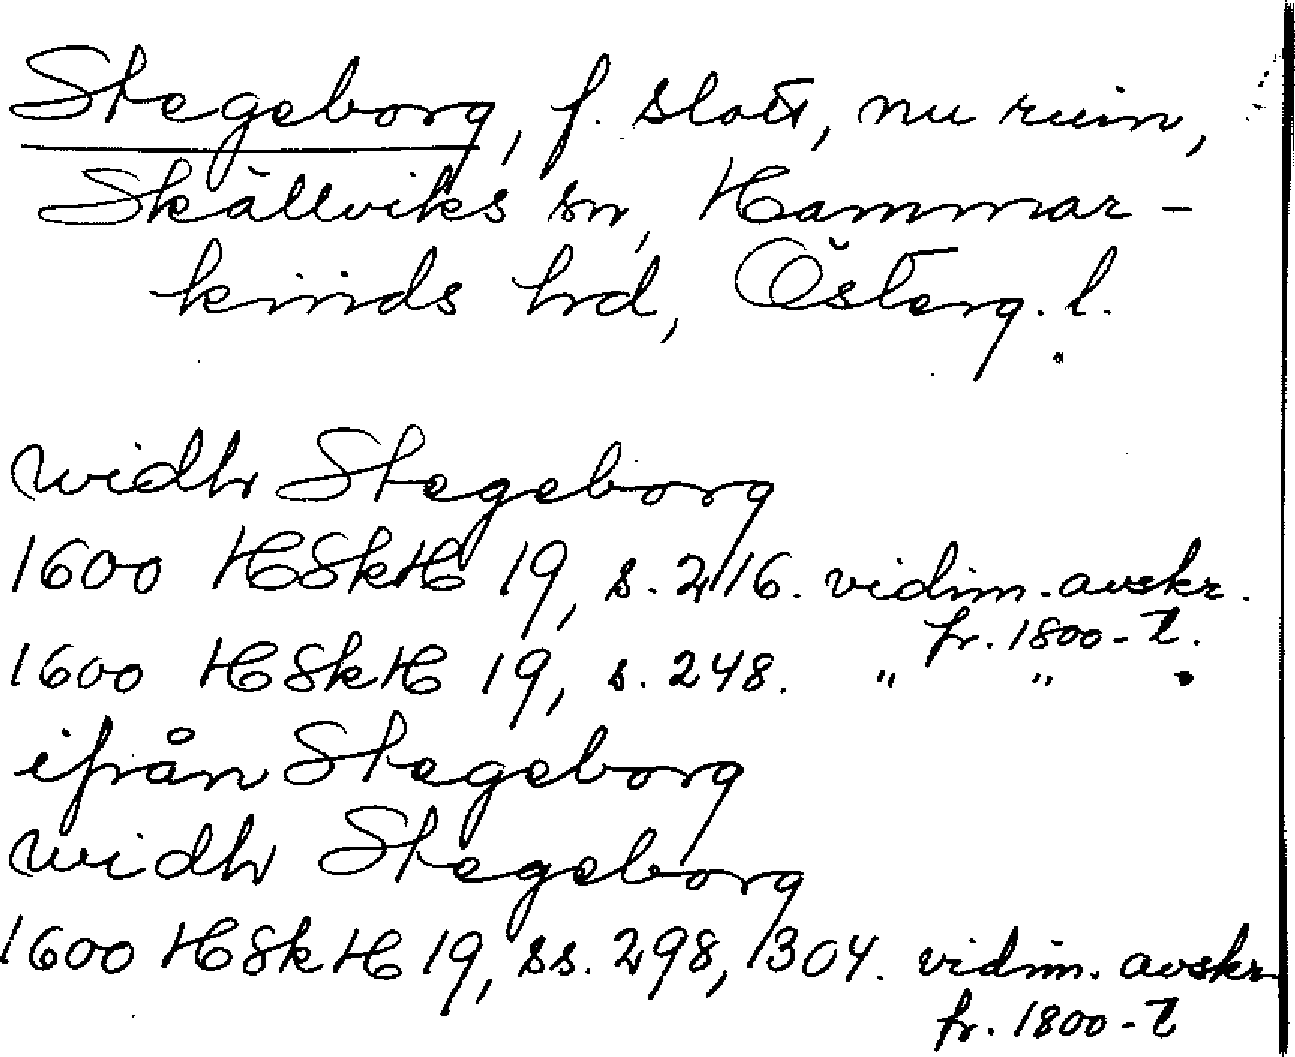 Stegeborg, f. slott, nu ruin,
Skällviks sn, Hammar-
kinds hrd, Österg. l.
widh Stegeborg
1600 HSkH 19, s. 216. vidim. avskr.
fr. 1800-t.
1600 HSkH 19, s. 248. " " .
ifrån Stegeborg
widh Stegeborg
1600 HSkH 19, ss. 298, 304. vidim. avskr
fr. 1800-t